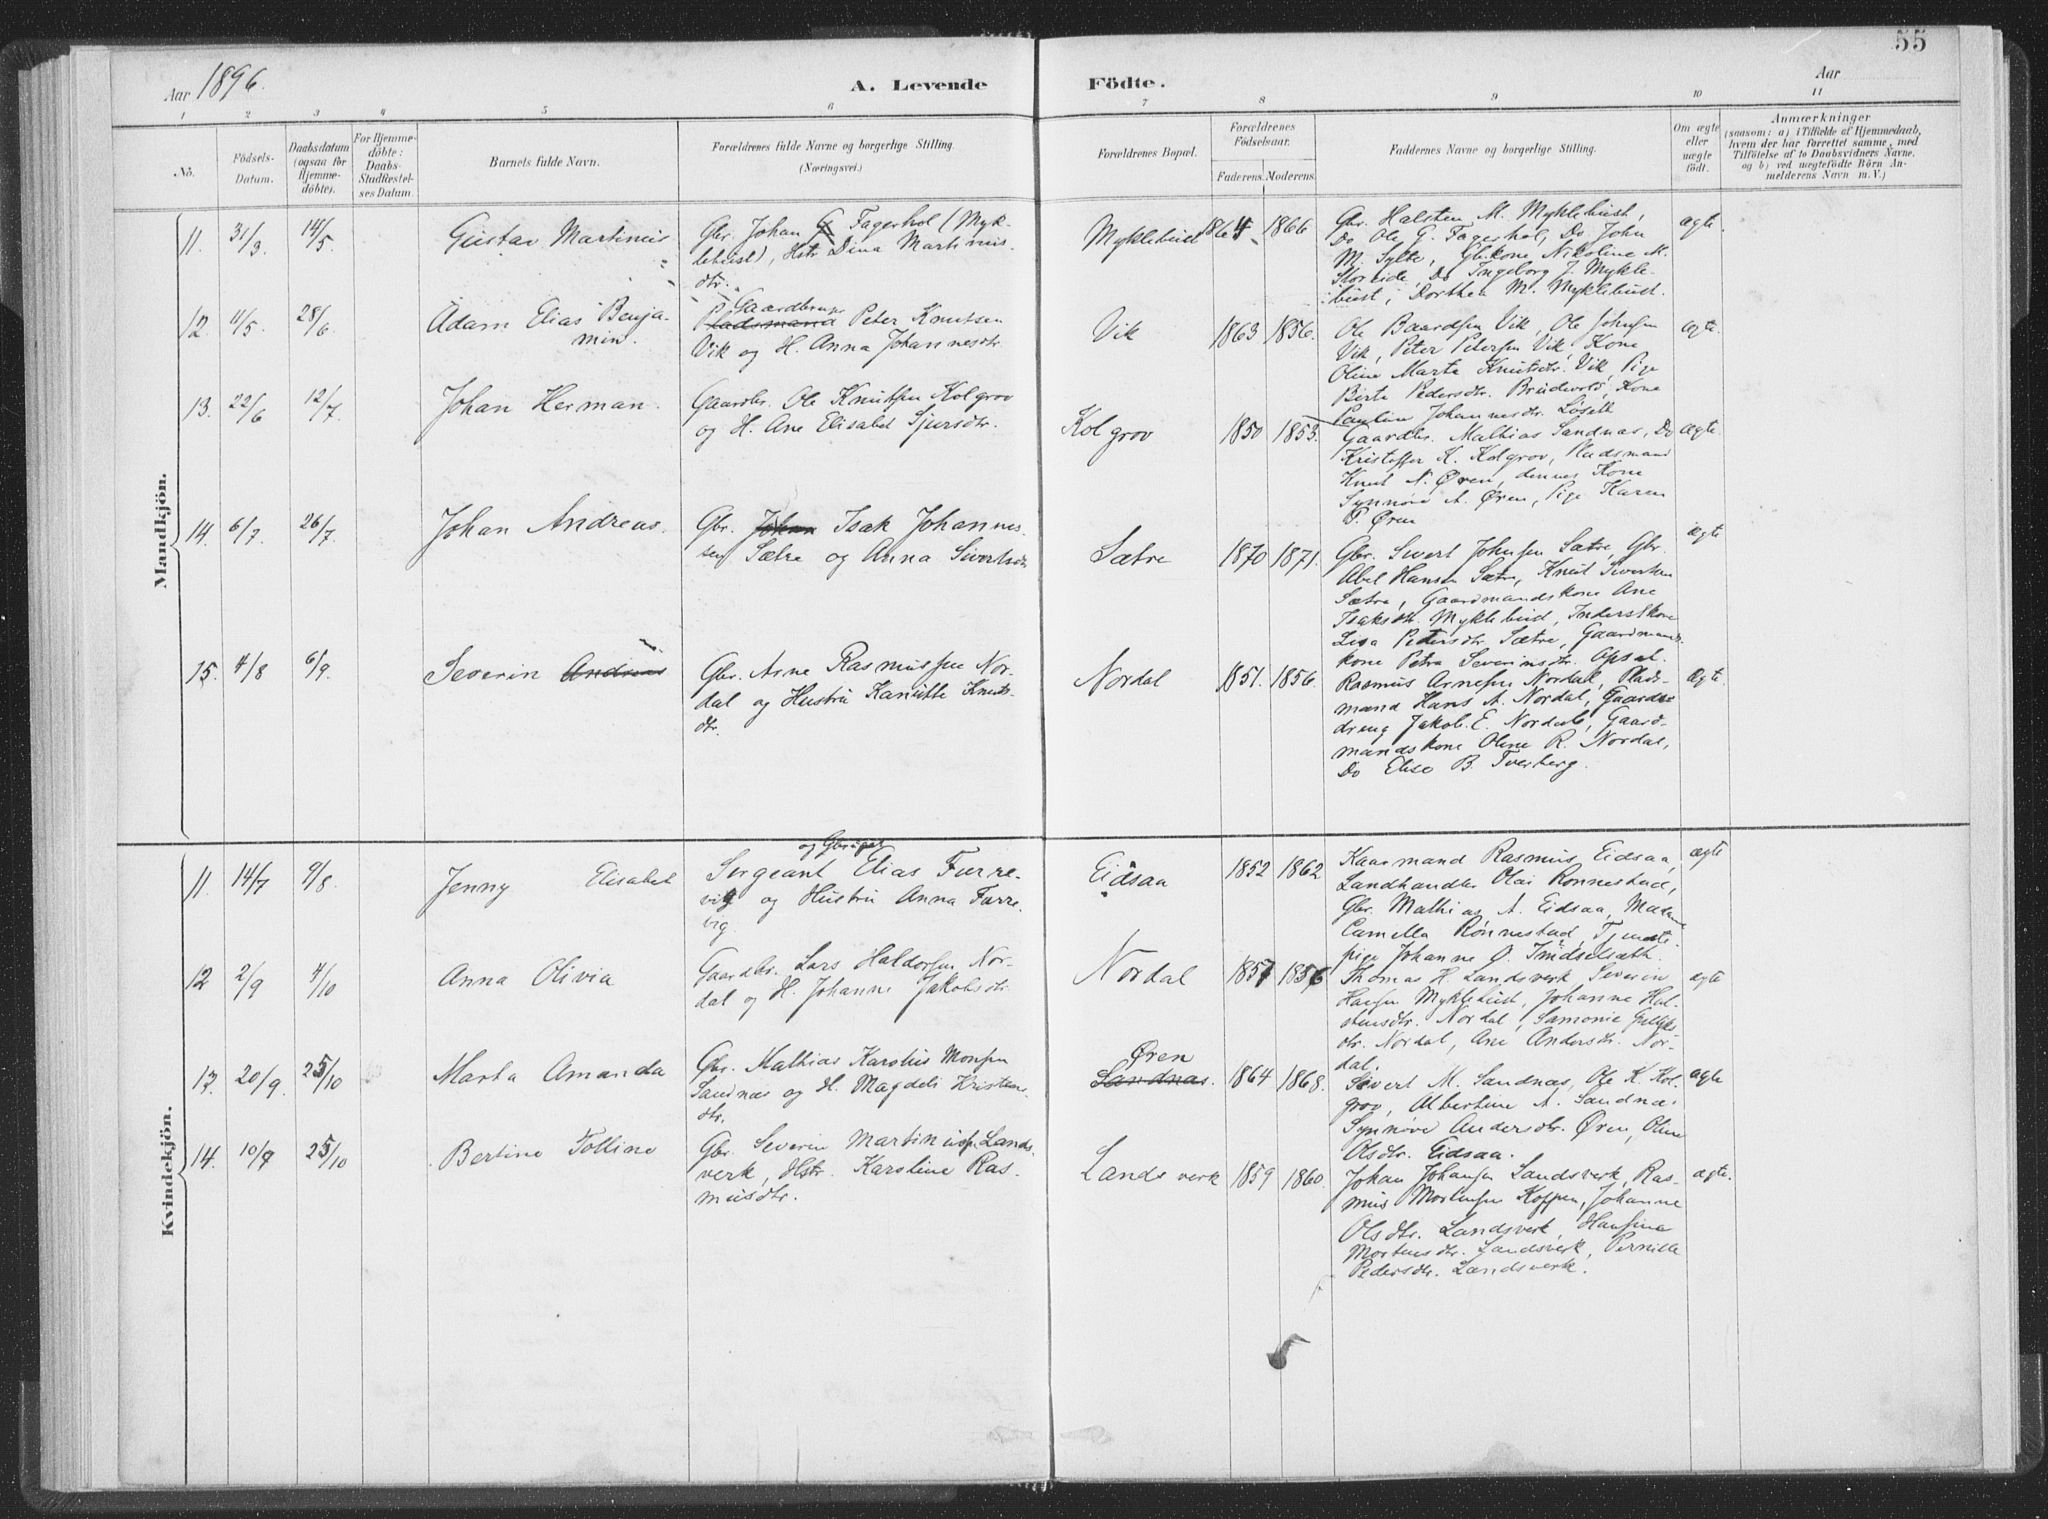 55
Aar 1896.
A. Levende Födte.
Aar
1 2 3 4 5 6 7 8 9 10 11
Nö.
Födsels-Datum.
Daabsdatum (ogsaa for Hjemmedöbte).
For Hjemmedöbte: Daabs-Stadfæstelses Datum.
Barnets fulde Navn.
Forældrenes fulde Navne og borgerlige Stilling.
(Næringsvei.)
Forældrenes Bopæl.
Forældrenes Födselsaar.
Faderens. Moderens.
Faddernes Navne og borgerlige Stilling.
Om ægte eller uægte födt.
Anmærkninger
(saasom: a) i Tilfælde af Hjemmedaab, hvem der har forrettet samme, med Tilföielse af to Daabsvidners Navne, og b) ved uægtefödte Börn Anmelderens Navn m. V.)
Mandkjön.
11. 31/3 14/5 Gustav Martinus
Gbr. Johan G Fagerhol (Myk-
lebust), Hstr Dina Martinus-
dtr.
Myklebust 1864 1866
Gbr. Halsten M. Myklebust,
Do Ole G. Fagerhol, Do John
M. Sylte, Gbkone Nikoline M.
Storeide, Do Ingeborg J. Mykle-
bust, Dorthea M. Myklebust.
ægte
12. 11/5 28/6 Adam Elias Benja-
min.
Gaardbruger
Pladsmand Peter Knutsen
Vik og H. Anna Johannesdtr
Vik 1863 1856.
Ole Baardsen Vik, Ole Johnsen
Vik, Peter Petersen Vik, Kone
Oline Marta Knutsdtr. Vik, Pige
Berte Pedersdtr. Brudevold, Kone
Pauline Johannesdtr. Løseth
ægte
13. 22/6 12/7 Johan Herman.
Gaardbr. Ole Knutsen Kolgrov
og H. Ane Elisabet Sjursdtr.
Kolgrov 1850 1853.
Gaardbr. Mathias Sandnas, Do
Kristoffer K. Kolgrov, Pladsmand
Knut N. Øren, dennes Kone
Synnøve A. Øren, Pige Karen
P. Øren
ægte
14. 6/7 26/7 Johan Andreas.
Gbr. Johan Isak Johannes-
sen Sætre og Anna Sivertsdtr
Sætre 1870 1871.
Gbr. Sivert Johnsen Sætre, Gbr.
Abel Hansen Sætre, Knut Sivertsen
Sætre, Gaardmandskone Ane
Isaksdtr. Myklebust, Inderstkone
Lisa Petersdtr. Sætre, Gaardmands-
kone Petra Severinsdtr. Opsal.
ægte
15. 4/8 6/9 Severin Andreas
Gbr. Arne Rasmussen Nor-
dal og Hustru Kanutte Knuts-
dtr.
Nordal 1851. 1856.
Rasmus Arnesen Nordal, Plads-
mand Hans A. Nordal, Gaard-
dreng Jakob E. Nordal, Gaard-
mandskone Oline R. Nordal,
Do Elise B. Tverberg.
Ægte
Kvindekjön.
11. 14/7 9/8 Jenny Elisabet
og Gbruger
Sergeant Elias Furre-
vig og Hustru Anna Furre-
vig.
Eidsaa 1852 1862
Kaarmand Rasmus Eidsaa,
Landhandler Olai Rønnestad,
Gbr. Mathias A. Eidsaa, Madam
Camilla Rønnestad Tjeneste-
pige Johanne O. Indselseth.
ægte
12 2/9 4/10 Anna Olivia
Gaardbr. Lars Haldorsen Nor-
dal og H. Johanne Jakobsdtr.
Nordal 1857 1856
Thomas H. Landsverk Severin
Hansen Myklebust, Johanne Hal-
stensdtr. Nordal, Samonie Gulliks-
dtr. Nordal, Ane Andersdtr. Nor-
dal.
ægte
13. 20/9 25/10 Marta Amanda
Gbr. Mathias Karolus Monsen
Sandnæs og H. Magdeli Kristens-
dtr.
Øren
Sandnas. 1864 1868.
Sivert M. Sandnæs, Ole K. Kol-
grov, Albertine A. Sandnæs
Synnøve Andersdtr. Øren, Oline
Olsdtr. Eidsaa.
ægte
14. 10/9 25/10 Bertine Tolline
Gbr. Severin Martinussen Lands-
verk, Hstr. Karoline Ras-
musdtr.
Landsverk 1859 1860.
Johan Johansen Landsverk, Ras-
mus Mortensen Koppen, Johanne
Olsdtr. Landsverk, Hansina
Mortensdtr. Landsverk, Pernille
Pedersdtr. Landsverk.
ægte.